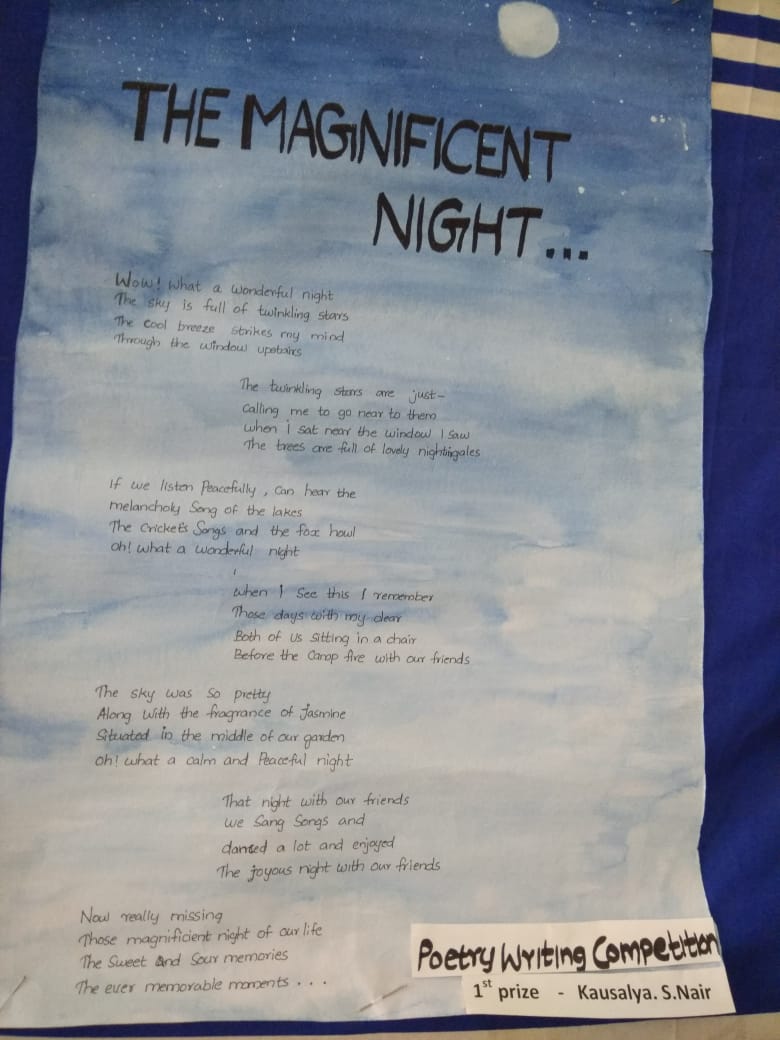 THE MAGNIFICENT
NIGHT...
Wow! What a wonderful night
The sky is full of twinkling stars
The cool breeze strikes my mind
Through the window upstairs
The twinkling stars are just-
calling me to go near to them
when i sat near the window I saw
The trees are full of lovely nightingales
If we listen Peacefully, can hear the
melancholy Song of the lakes
The Crickets Songs and the fox howl
oh! what a wonderful night
when I See this I remember
Those days with my dear
Both of us sitting in a chair
Before the Camp fire with our friends
The sky was so pretty
Along with the fragrance of Jasmine
Situated in the middle of our garden
oh! what a calm and Peaceful night
That night with our friends
we Sang Songs and
danced a lot and enjoyed
The joyous night with our friends
Now really missing
Those magnificient night of our life
The Sweet And Sour memories
The ever memorable moments ...
Poetry Writing Competition
1st prize - Kausalya. S.Nair